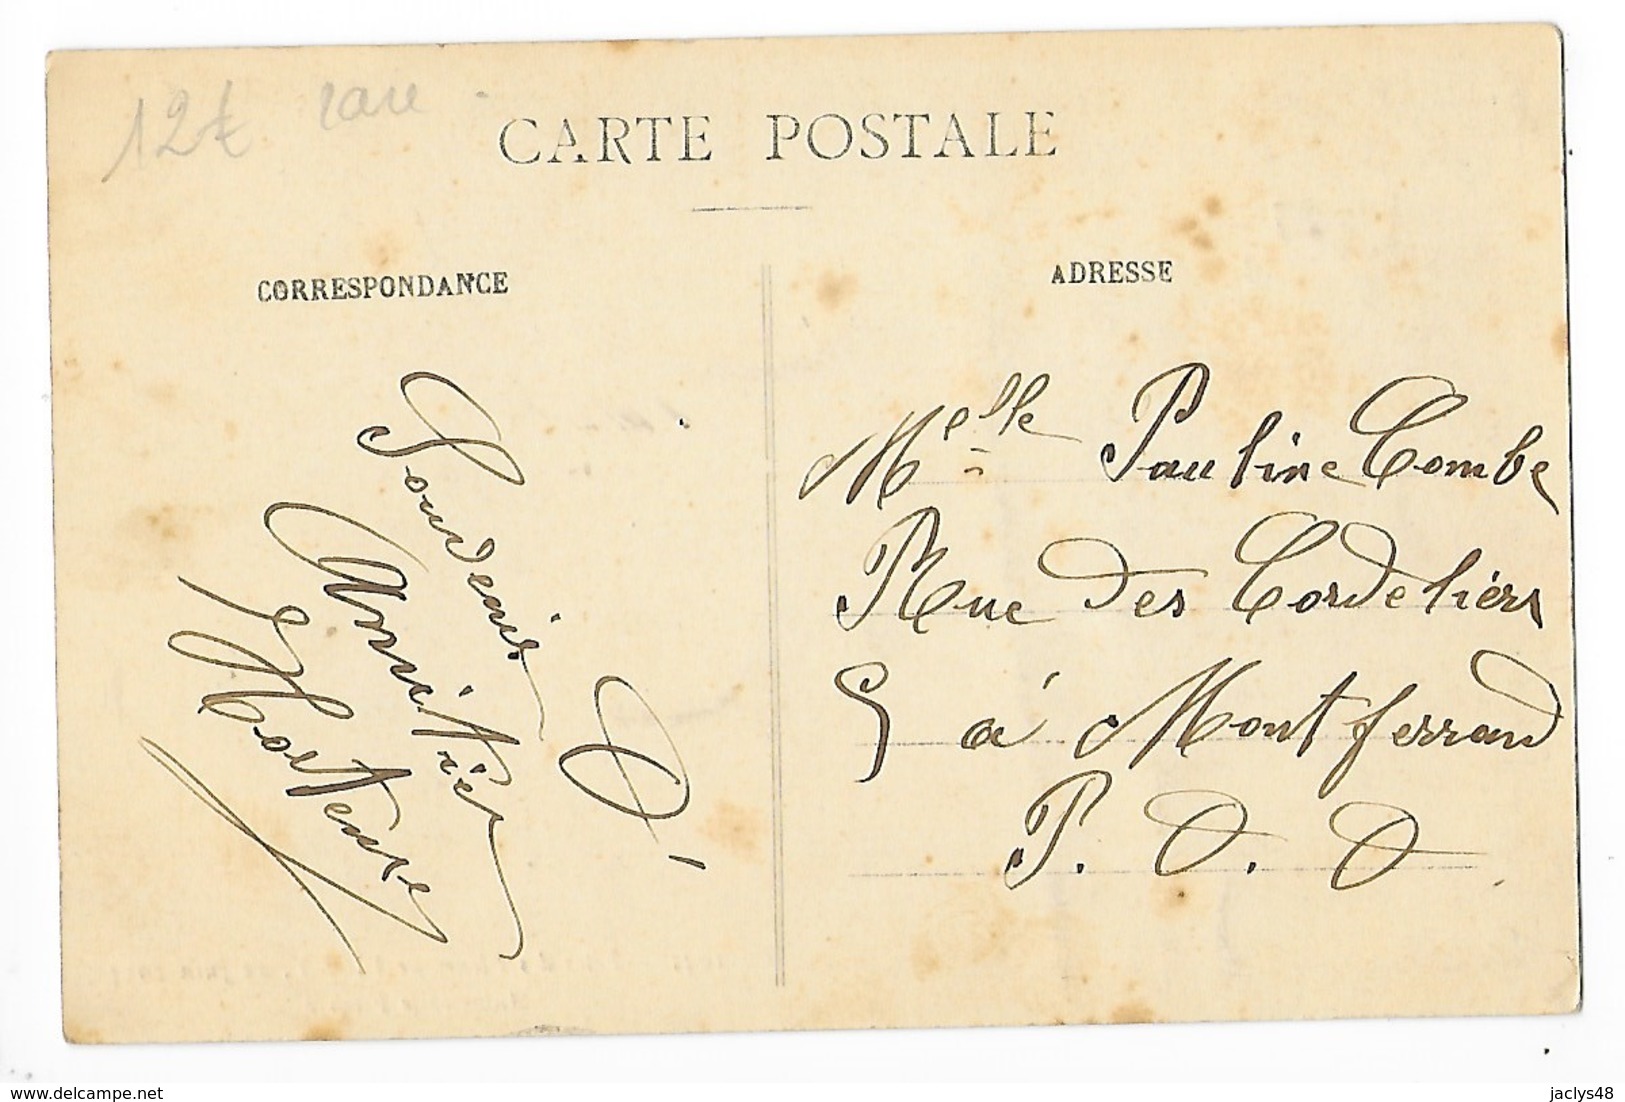 12€ rare
CARTE POSTALE
CORRESPONDANCE
ADRESSE
Souvenir D'
Amitier
Hortense
Melle Pauline Combe
Rue Des Cordeliérs
5 à Montferrand
P. D. D
delcampe.net
jaclys48